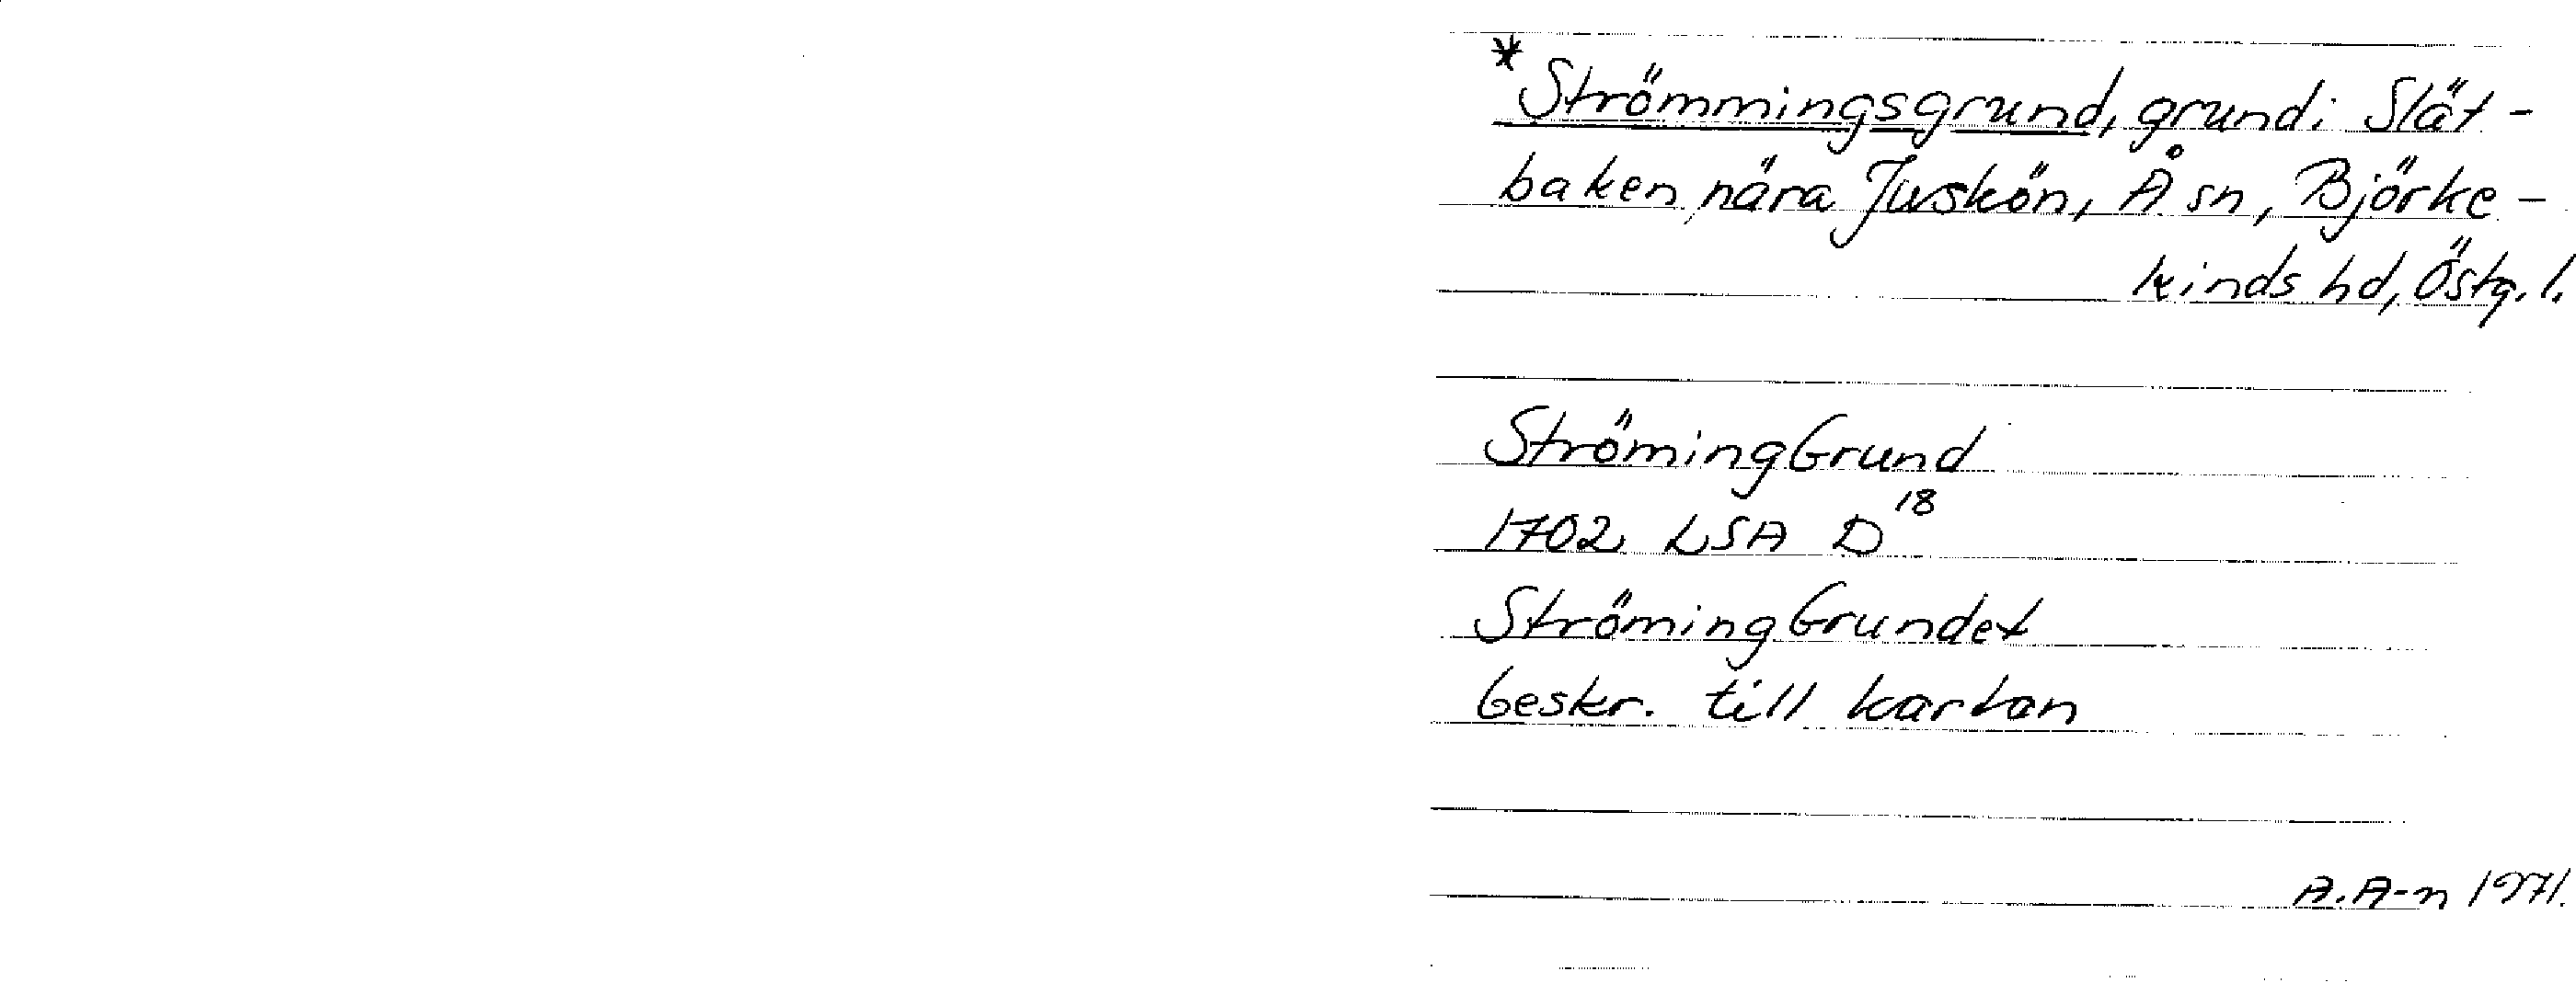 *Strömmingsgrund, grund i Slät-
baken nära Juvskön, Å sn, Björke-
kinds hd, Östg. l.
StrömingGrund
1702 LSA D 18
StrömingGrundet
beskr. till kartan
A. A-n 1971.